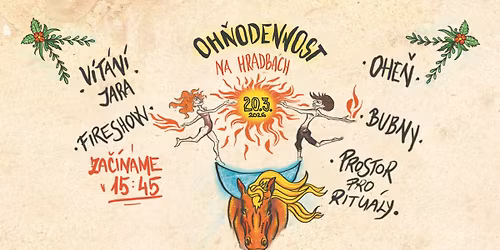 OHŇODENNOST
NA HRADBÁCH
· VÍTÁNÍ
JARA ·
· FIRESHOW ·
ZAČÍNÁME
V 15:45
20.3.
2026
· OHEŇ ·
· BUBNY ·
· PROSTOR
PRO
RITUÁLY ·